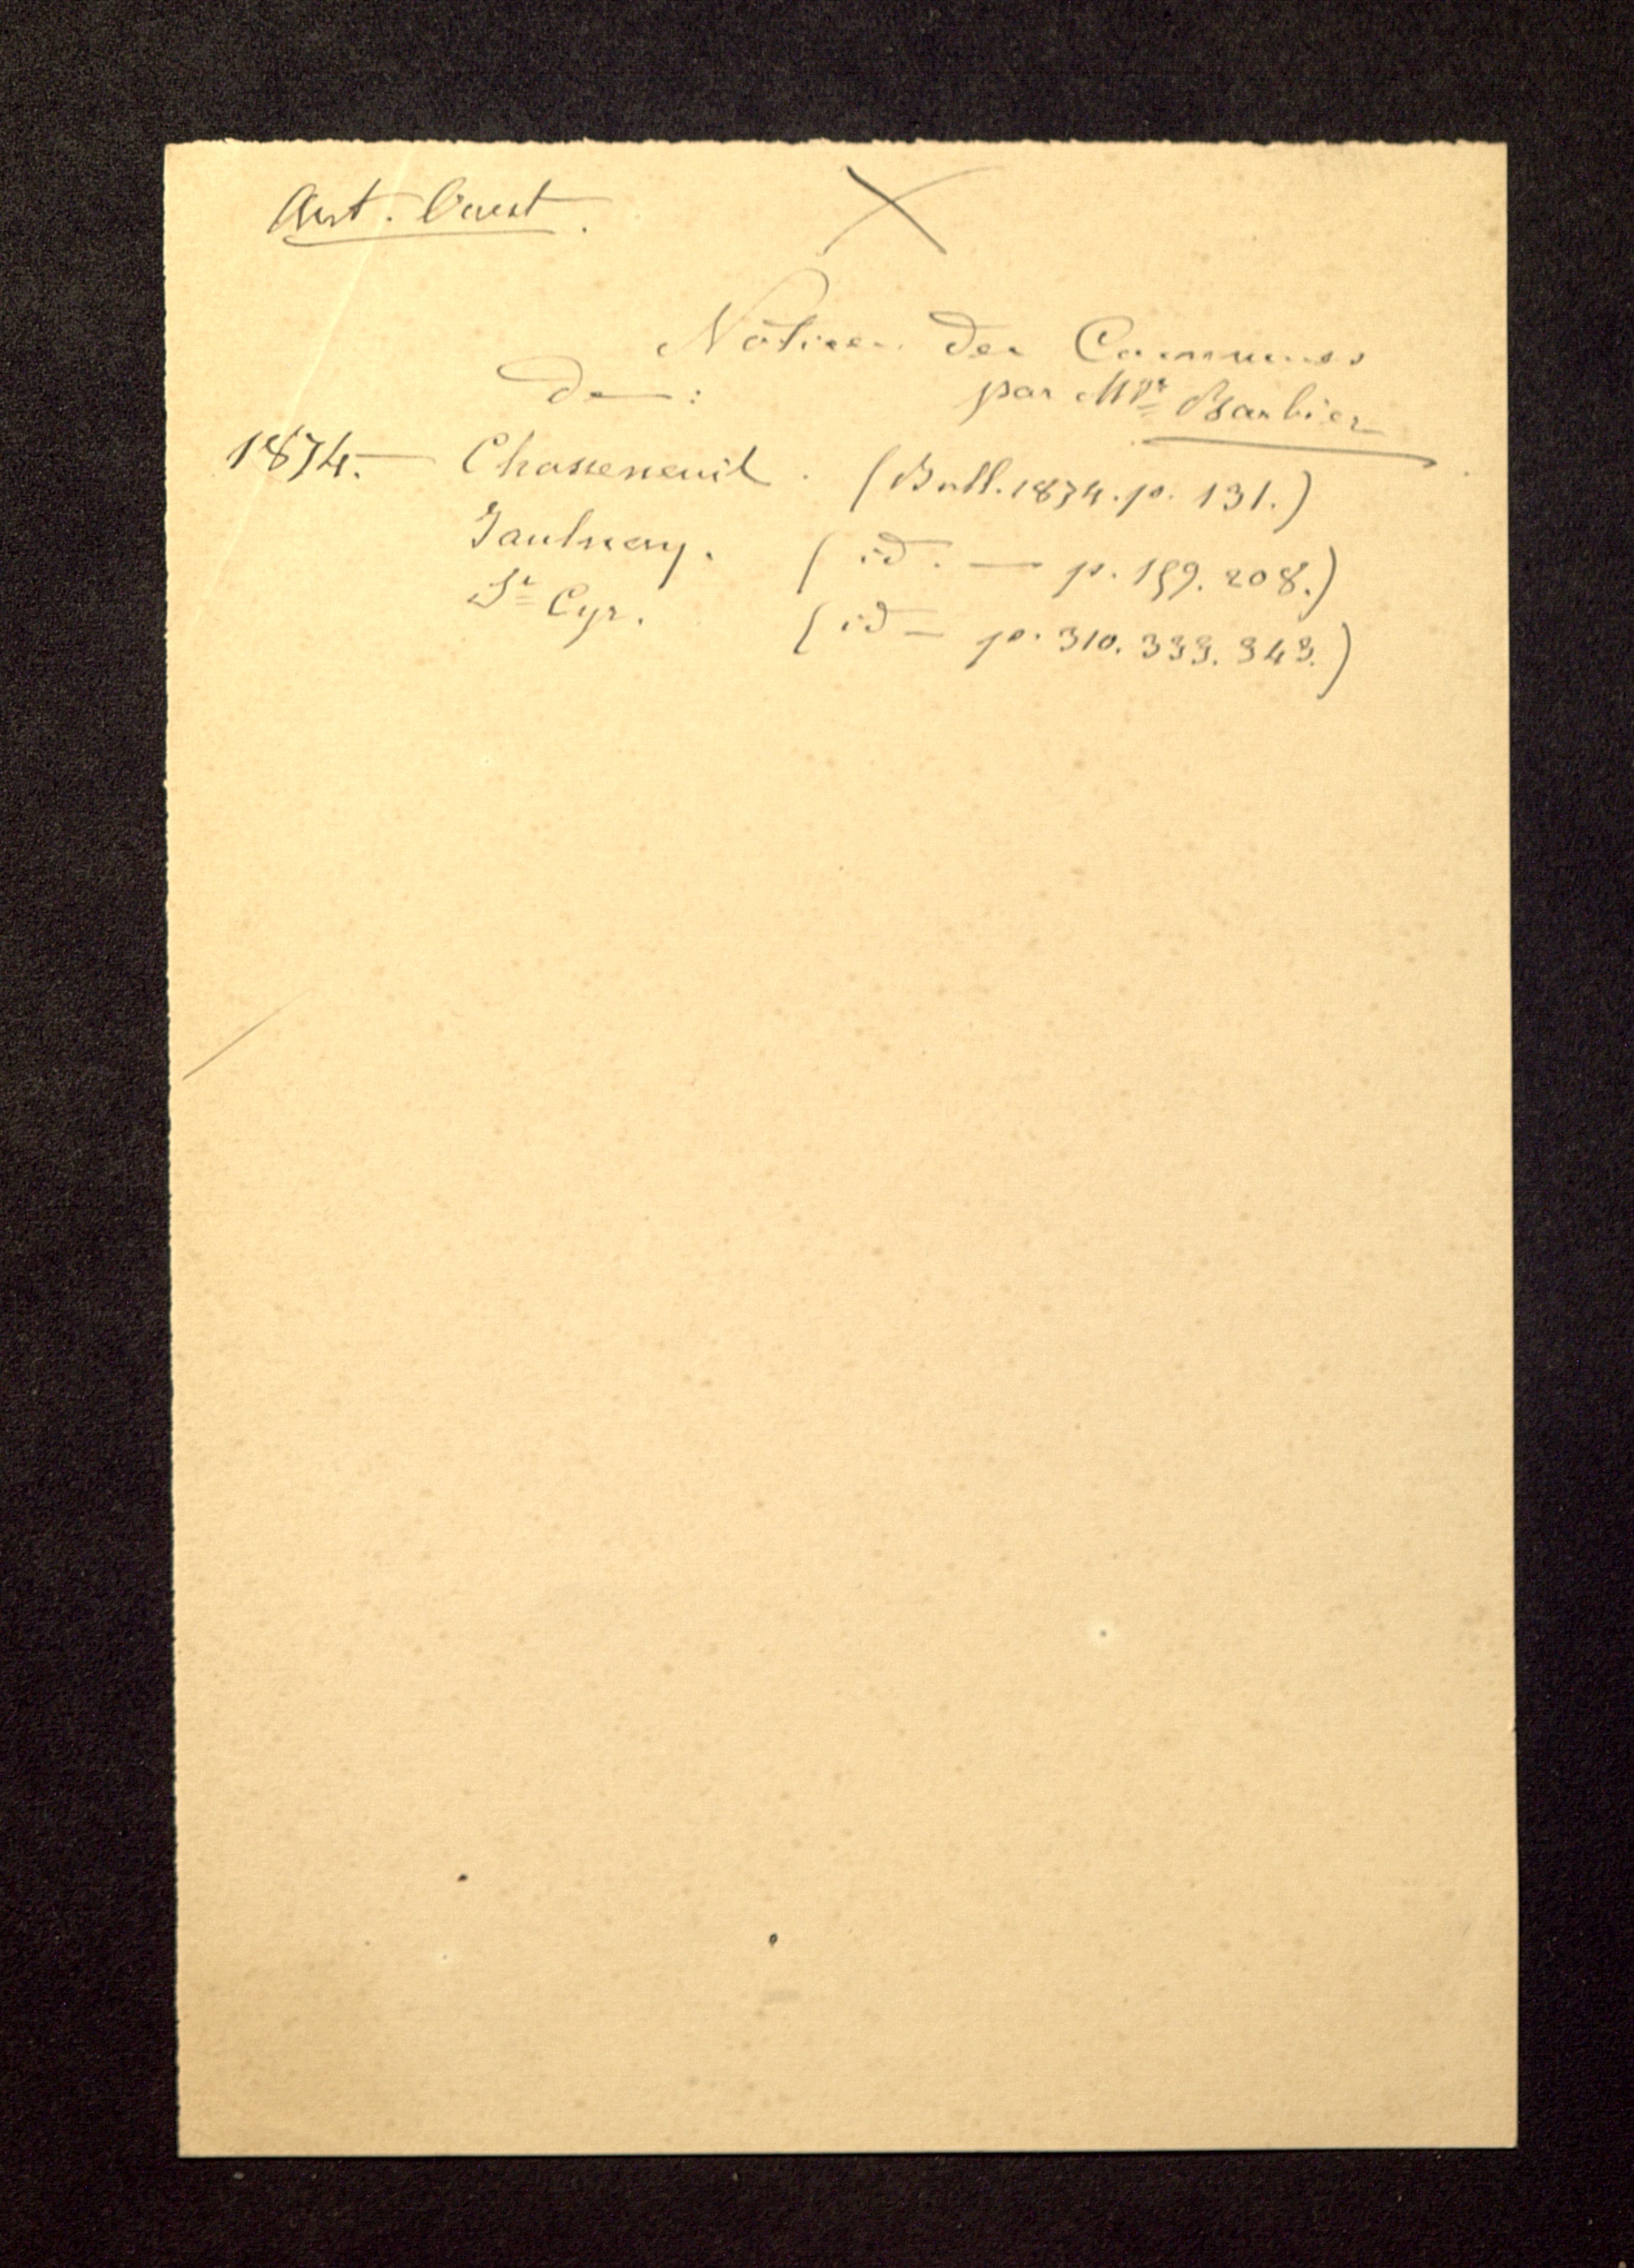 Ant. Ouest.
Notices des Communes
de : par Mr. Barbier
1874. — Chasseneuil. (Bull. 1874. p. 131.)
Jaulnay. (id. — p. 159. 208.)
St Cyr. (id — p. 310. 333. 343.)